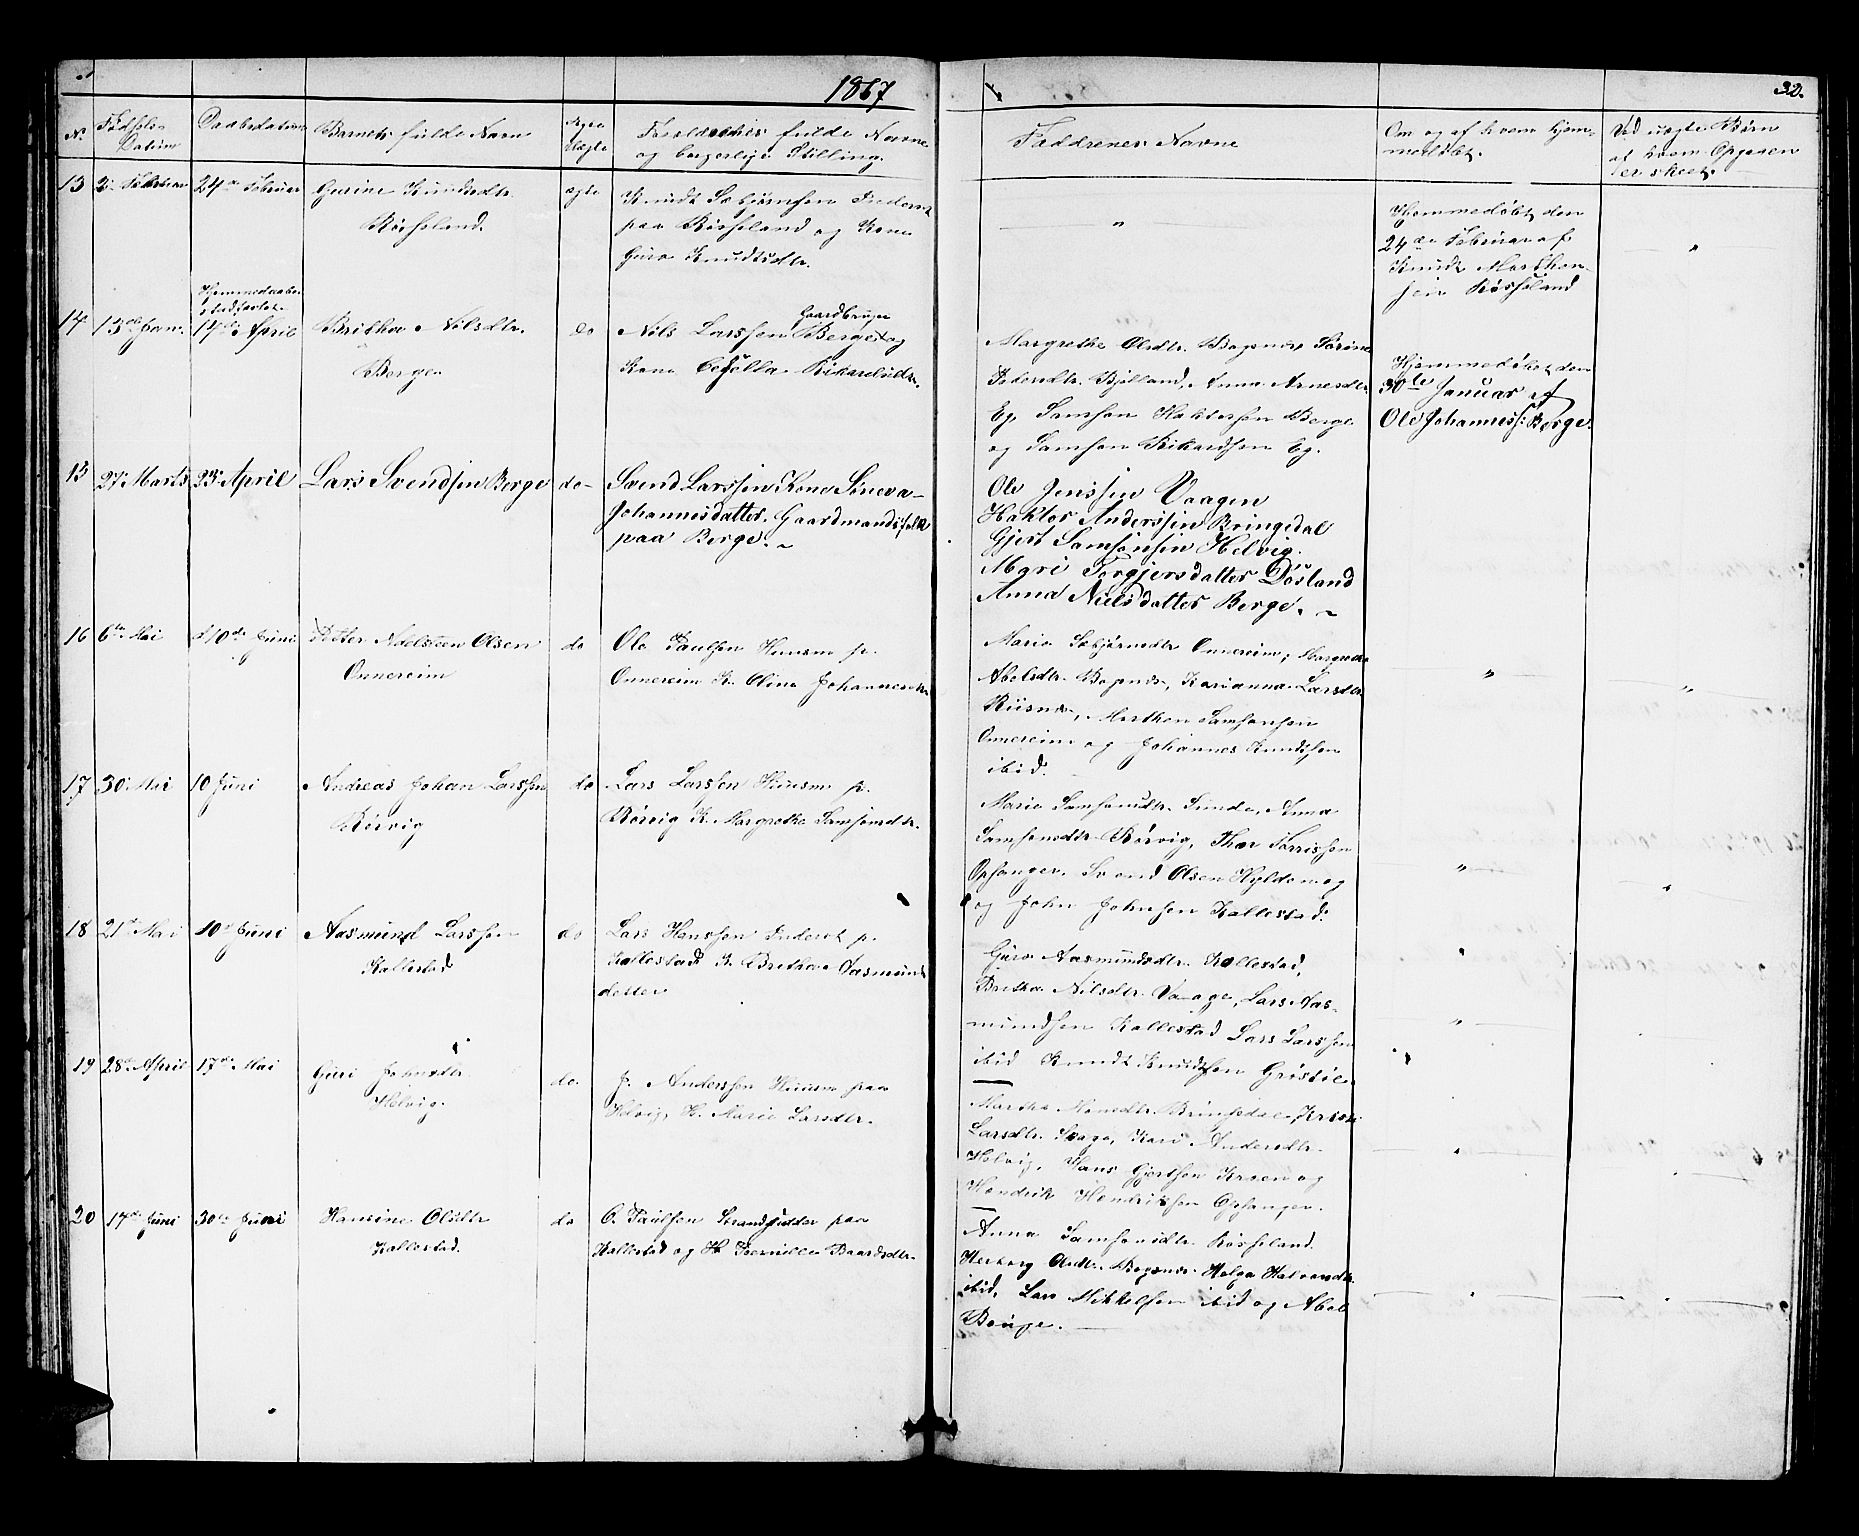 1867
32.
No
Fødsels-
Datum
Daabsdatum
Barnets fulde Navn
Ægte
Uægte
Forældrenes fulde Navne
og borgerlige Stilling.
Faddrenes Navne
Om og af hvem hjem-
medøbt.
Ved uægte Børn
af hvem Opgaven
er skeet.
13 24de Februar
Gurine Knudsdtr.
Røsseland.
ægte
Knudt Sæbjørnsen Inderst
paa Røsseland og Kone
Guro Knudtsdtr.
"
Hjemmedøbt den
24de Februar af
Knudt Marthen-
sen Røsseland
"
Hjemmedaaben
stadfæstet
14 13de Jan. 14de April
Britha Nilsdtr.
Berge
do
Gaardbruger
Nils Larssen Berge og
Kone Rikardsdtr.
Margrethe Olsdtr. Bogsnes, Sørine
Pedersdtr. Bjelland, Anna Arnesdtr.
Eg, Samson Haktorsen Berge
og Samson Rikardsen Eg.
Hjemmedøbt den
30te Januar af
Ole Johanness: Berge.
15 27 Marts 23 April Lars Svendsen Berge do-
Svend Larssen, Kone Sineva
Johannesdatter. Gaardmandsfolk
paa Berge. ~
Ole Jenssen Vaagen
Haktor Anderssen Bringedal
Gjert Samsonsen Helvig.
Mari Torgjersdatter Døsland
Anna Nielsdatter Berge. ~
16 6te Mai 10de Juni Petter Adelsteen Olsen
Onnereim
do
Ole Paulsen Huusm p.
Onnereim K. Olina Johannesdtr
Maria Sæbjørnsdtr Onnereim, Margrethe
Abelsdtr. Bogsnes, Karianna Larsdtr.
Riisnes, Marthen Samsonsen
Onnereim og Johannes Knudsen
ibid.
"
"
17 30 Mai 10 Juni Andreas Johan Larssen
Rørvig
do
Lars Larssen Huusm p.
Rørvig K. Margrethe Samsonsdtr.
Marie Samsonsdtr. Sunde, Anna
Samsonsdtr. Rørvig, Thor Torrissen
Opsanger, Svend Olsen
og John Johnsen Kallestad.
"
"
18 21de Mai 10de Juni Aasmund Larssen
Kallestad
do
Lars Hanssen Inderst p.
Kallestad K. Britha Aasmunds
datter
Guro Aasmundsdtr. Kallestad,
Britha Nilsdtr. Vaage, Lars Aas-
mundsen Kallestad Lars Larssen
ibid Knudt Knudtsen
"
19 28de April 17de Mai
Guri Johnsdtr
Helvig.
do.
J. Anderssen Huusm paa
Helvig, H. Marie Larsdtr.
Martha Monsdtr Bringedal,
Larsdtr. Kari Andersdtr.
Helvig, Hans Gjertsen og
Hendrik Hendriksen Opsanger.
"
20 17de Juni 30te Juni
Hansine Olsdtr
Kallestad.
do
O. Paulsen Strandsidder paa
Kallestad og H. Baardsdtr.
Anna Samsonsdtr. Røsseland.
Herborg Olsdtr. Bogsnes Helga Halvorsdtr.
ibid, Lars Mikkelsen ibid og Abel
"
"